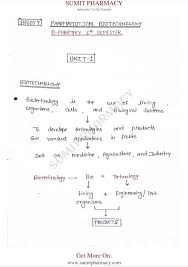 SUMIT PHARMACY
BP605T PHARMACEUTICAL BIOTECHNOLOGY
B-PHARMACY 6th SEMESTER
UNIT-1
BIOTECHNOLOGY
Biotechnology is the use of living
organisms, cells, and Biological Systems
To develop technologies and products
for various applications in fields
Such as medicine, Agriculture, and Industry
Biotechnology → Bio + Technology
Living + Engineering/Tech
organisms
PRODUCTS
SUMIT PHARMACY
Get More On:
www.sumitpharmacy.com